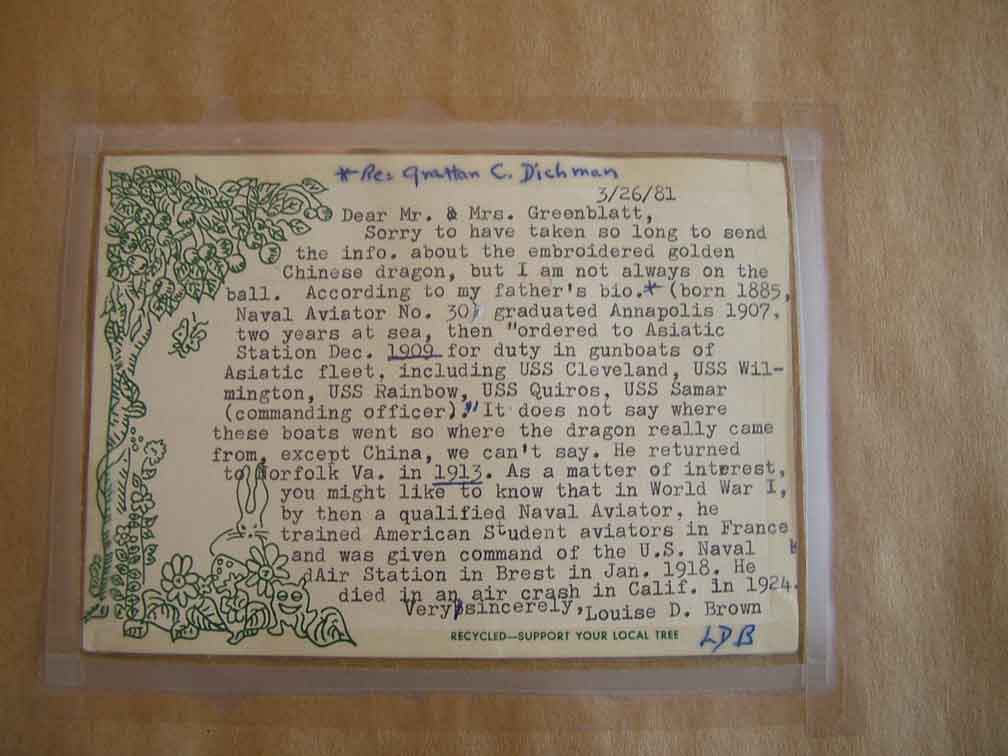 *Re: Grattan C. Dichman
3/26/81
Dear Mr. & Mrs. Greenblatt,
Sorry to have taken so long to send
the info. about the embroidered golden
Chinese dragon, but I am not always on the
ball. According to my father's bio.* (born 1885,
Naval Aviator No. 30) graduated Annapolis 1907,
two years at sea, then "ordered to Asiatic
Station Dec. 1909 for duty in gunboats of
Asiatic fleet, including USS Cleveland, USS Wil-
mington, USS Rainbow, USS Quiros, USS Samar
(commanding officer)." It does not say where
these boats went so where the dragon really came
from, except China, we can't say. He returned
to Norfolk Va. in 1913. As a matter of interest,
you might like to know that in World War I,
by then a qualified Naval Aviator, he
trained American Student aviators in France
and was given command of the U.S. Naval
Air Station in Brest in Jan. 1918. He
died in an air crash in Calif. in 1924.
Very sincerely, Louise D. Brown
RECYCLED—SUPPORT YOUR LOCAL TREE
LDB